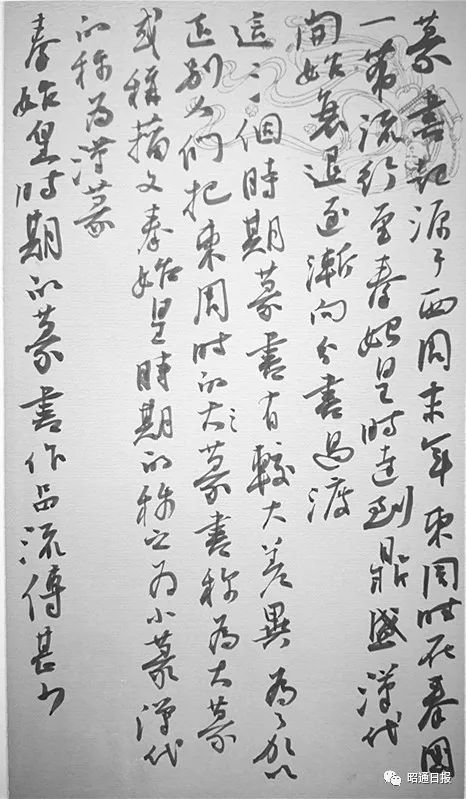 篆書起源于西周末年東周时在秦國
一带流行至秦始皇时达到鼎盛漢代
開始衰退逐漸向分書過渡
這三個時期篆書有較大差異為了加以
区别人们把東周时的大篆書称為大篆
或稱籀文秦始皇時期的称之为小篆漢代
的称為漢篆
秦始皇時期的篆書作品流傳甚少
昭通日报